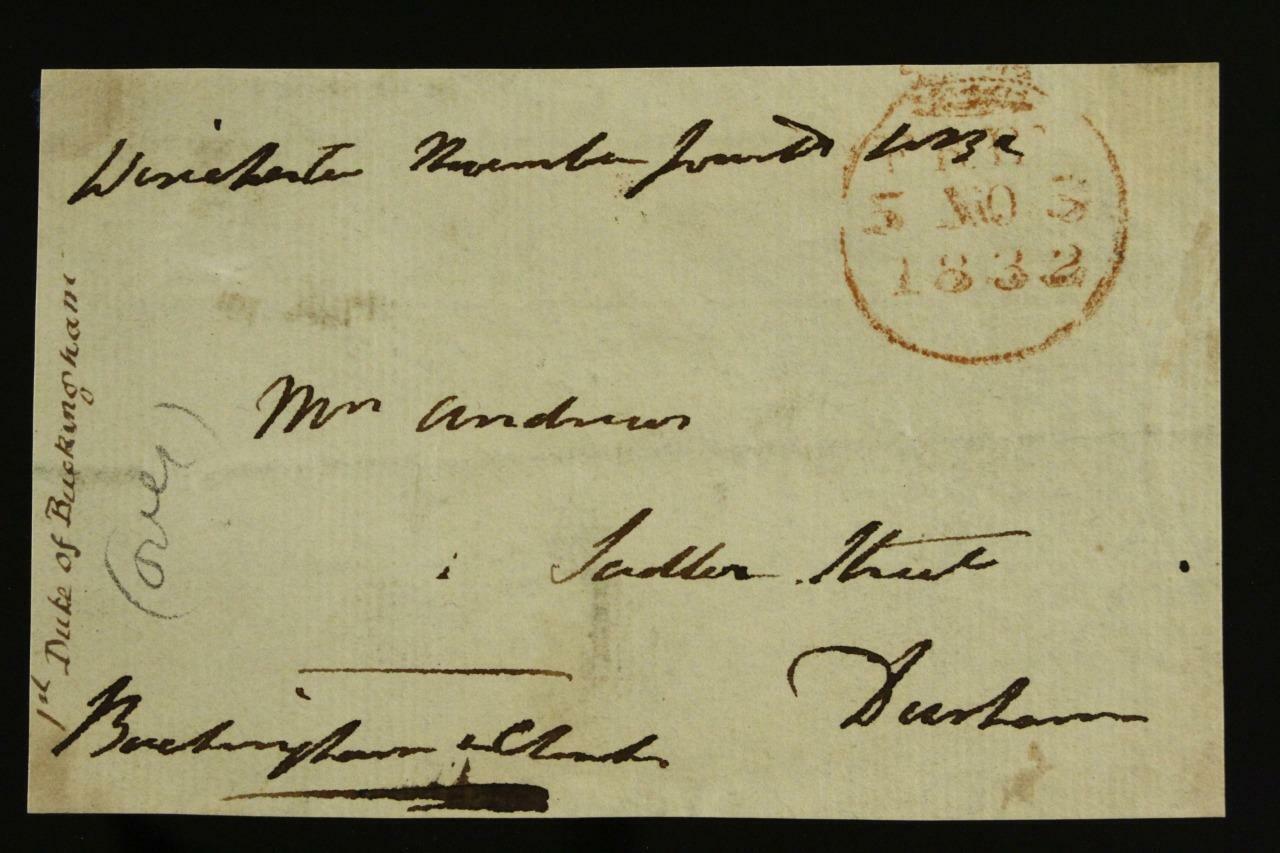 Winchester November fourth 1832
FREE
5 NO 5
1832
Mrs Andrews
Sadler Street
Durham
Buckingham & Chandos
1st Duke of Buckingham
(over)